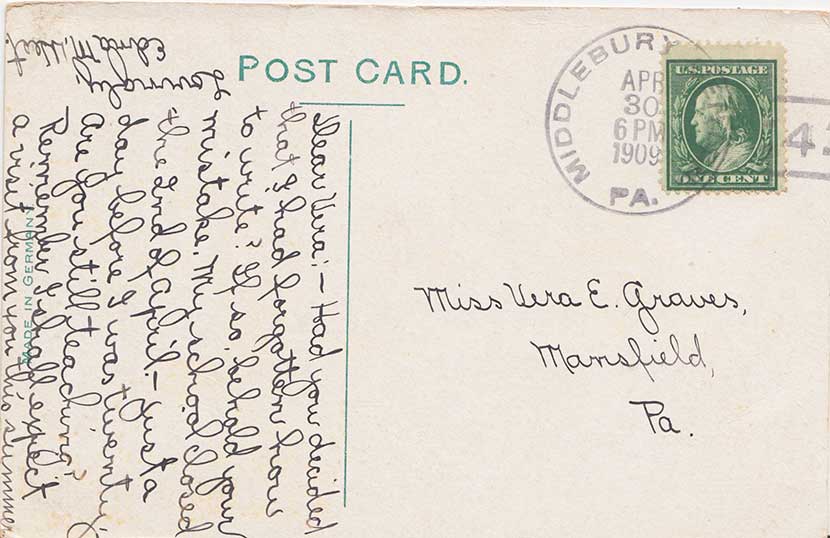 POST CARD.
MIDDLEBURY
APR
30
6 PM
1909
PA.
U.S. POSTAGE
ONE CENT
4
Miss Vera E. Graves,
Mansfield,
Pa.
Dear Vera:— Had you decided
that I had forgotten how
to write? If so, behold your
mistake. My school closed
the 2nd of April.— Just a
day before I was twenty.
Are you still teaching?
Remember I shall expect
a visit from you this summer
Lovingly,
Edna M.
MADE IN GERMANY